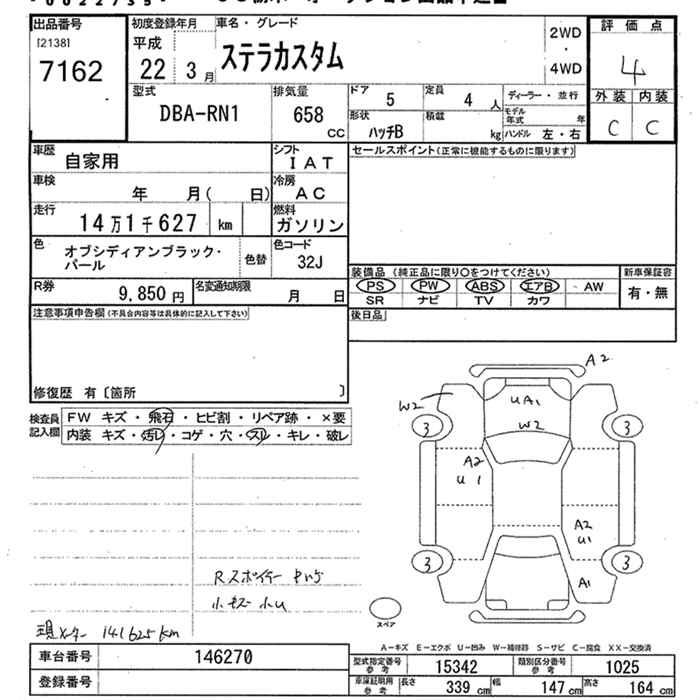 出品番号
[2138]
7162
初度登録年月
平成
22 3 月
車名・グレード
ステラカスタム
2WD
・
4WD
評価点
4
外装 内装
C C
型式
DBA-RN1
排気量
658
CC
ドア
5
定員
4 人
形状
ハッチB
積載
kg
ディーラー・並行
モデル年式 年
ハンドル 左・右
車歴
自家用
シフト
IAT
セールスポイント(正常に機能するものに限ります)
車検
年 月( 日)
冷房
AC
走行
14万1千627 km
燃料
ガソリン
色
オブシディアンブラック・
パール
色替
色コード
32J
R券
9,850 円
名変通知期限
月 日
装備品 (純正品に限り○をつけてください)
新車保証書
PS PW ABS エアB AW
SR ナビ TV カワ
有・無
注意事項申告欄(不具合内容等は具体的に記入して下さい)
後日品
修復歴 有〔箇所 〕
検査員
記入欄
FW キズ・飛石・ヒビ割・リペア跡・×要
内装 キズ・汚レ・コゲ・穴・スレ・キレ・破レ
A2
W2
UA1
W2
3
3
A2
U1
A2
U1
3
3
A1
スペア
Rスポイラー
小キズ 小U
現メーター 141625km
A-キズ E-エクボ U-凹み W-補修跡 S-サビ C-腐食 XX-交換済
車台番号
146270
登録番号
型式指定番号
参考
15342
類別区分番号
参考
1025
車庫証明用
参考
長さ
339 cm
幅
147 cm
高さ
164 cm